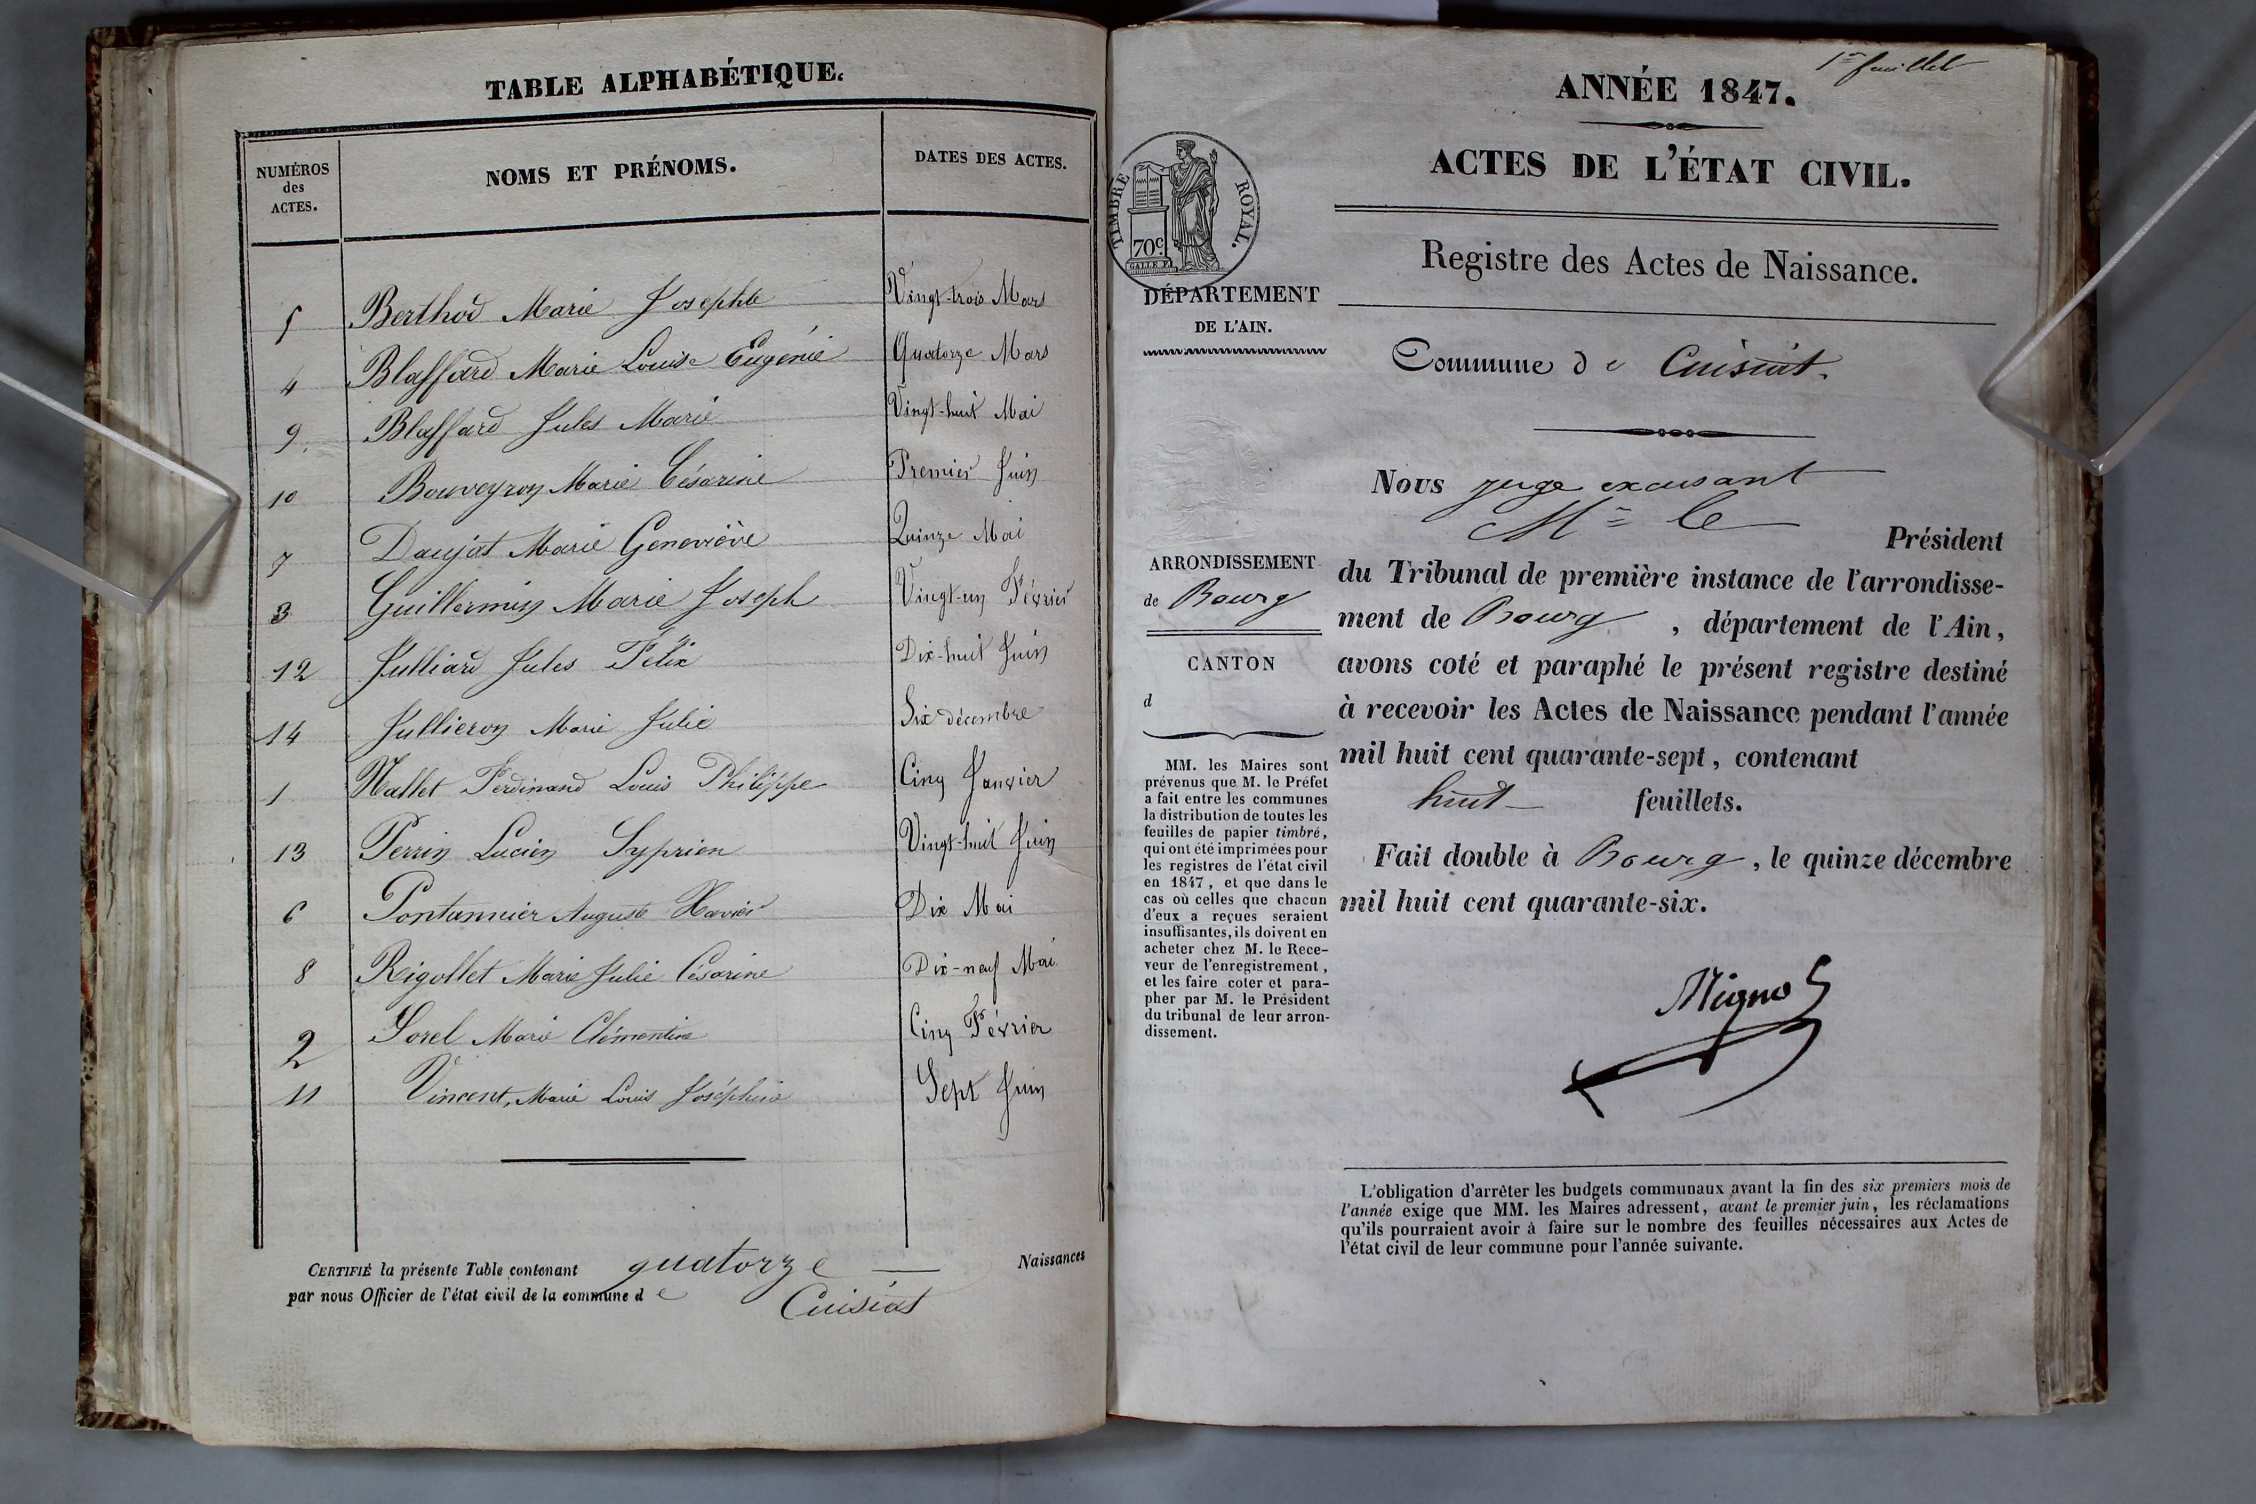 TABLE ALPHABÉTIQUE.
NUMÉROS
des
ACTES.
NOMS ET PRÉNOMS.
DATES DES ACTES.
5 Berthod Marie Josephte Vingt-trois Mars
4 Blaffard Marie Louise Eugénie Quatorze Mars
9. Blaffard Jules Marie Vingt-huit Mai
10 Bouveyron Marie Césarine Premier Juin
7 Daujat Marie Geneviève Quinze Mai
3 Guillermin Marie Joseph Vingt-un Février
12 Julliard Jules Félix Dix-huit Juin
14 Jullieron Marie Julie Six décembre
1 Nallet Ferdinand Louis Philippe Cinq Janvier
13 Perrin Lucien Syprien Vingt-huit Juin
6 Pontannier Auguste Xavier Dix Mai
8 Rigollet Marie Julie Césarine Dix-neuf Mai
2 Sorel Marie Clémentine Cinq Février
11 Vincent, Marie Louis Joséphine Sept Juin
CERTIFIÉ la présente Table contenant quatorze Naissances
par nous Officier de l'état civil de la commune de Cuisiat
1er feuillet
ANNÉE 1847.
ACTES DE L'ÉTAT CIVIL.
TIMBRE ROYAL.
70c.
Registre des Actes de Naissance.
DÉPARTEMENT
DE L'AIN.
Commune de Cuisiat.
Nous juge excusant
Mr le
Président
du Tribunal de première instance de l'arrondisse-
ment de Bourg, département de l'Ain,
avons coté et paraphé le présent registre destiné
à recevoir les Actes de Naissance pendant l'année
mil huit cent quarante-sept, contenant
huit feuillets.
Fait double à Bourg, le quinze décembre
mil huit cent quarante-six.
ARRONDISSEMENT
de Bourg
CANTON
d
MM. les Maires sont
prévenus que M. le Préfet
a fait entre les communes
la distribution de toutes les
feuilles de papier timbré,
qui ont été imprimées pour
les registres de l'état civil
en 1847, et que dans le
cas où celles que chacun
d'eux a reçues seraient
insuffisantes, ils doivent en
acheter chez M. le Rece-
veur de l'enregistrement,
et les faire coter et para-
pher par M. le Président
du tribunal de leur arron-
dissement.
L'obligation d'arrêter les budgets communaux avant la fin des six premiers mois de
l'année exige que MM. les Maires adressent, avant le premier juin, les réclamations
qu'ils pourraient avoir à faire sur le nombre des feuilles nécessaires aux Actes de
l'état civil de leur commune pour l'année suivante.